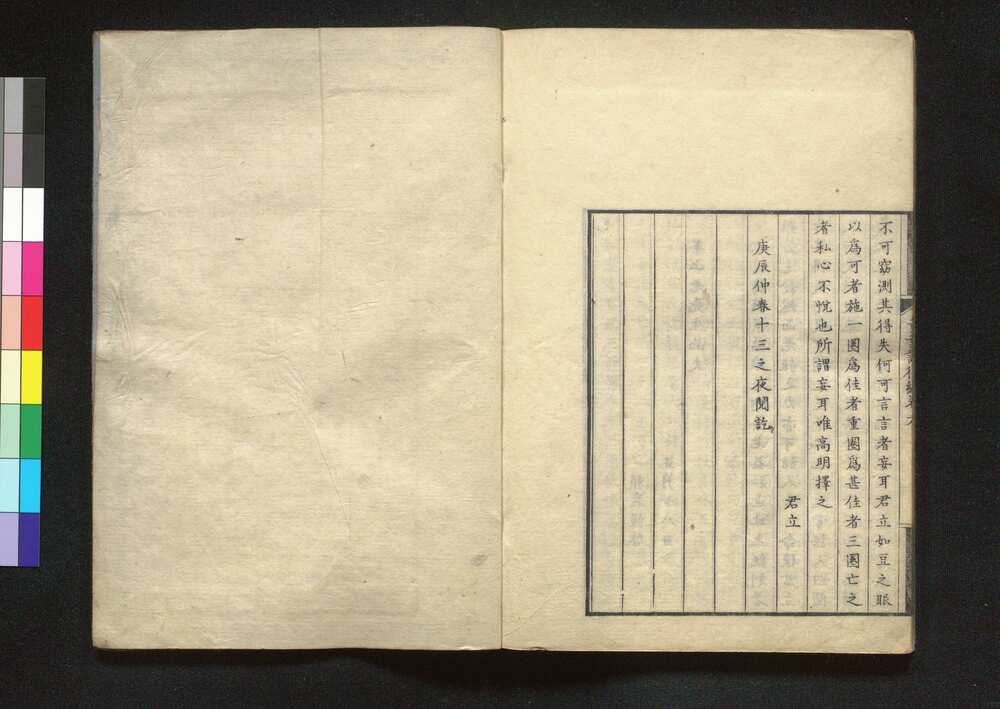 不可窺測其得失何可言言者妄耳君立如豆之眼
以爲可者施一圏爲佳者重圏爲甚佳者三圏亡之
者私心不悅也所謂妄耳唯高明擇之
君立
庚辰仲春十三之夜閲訖